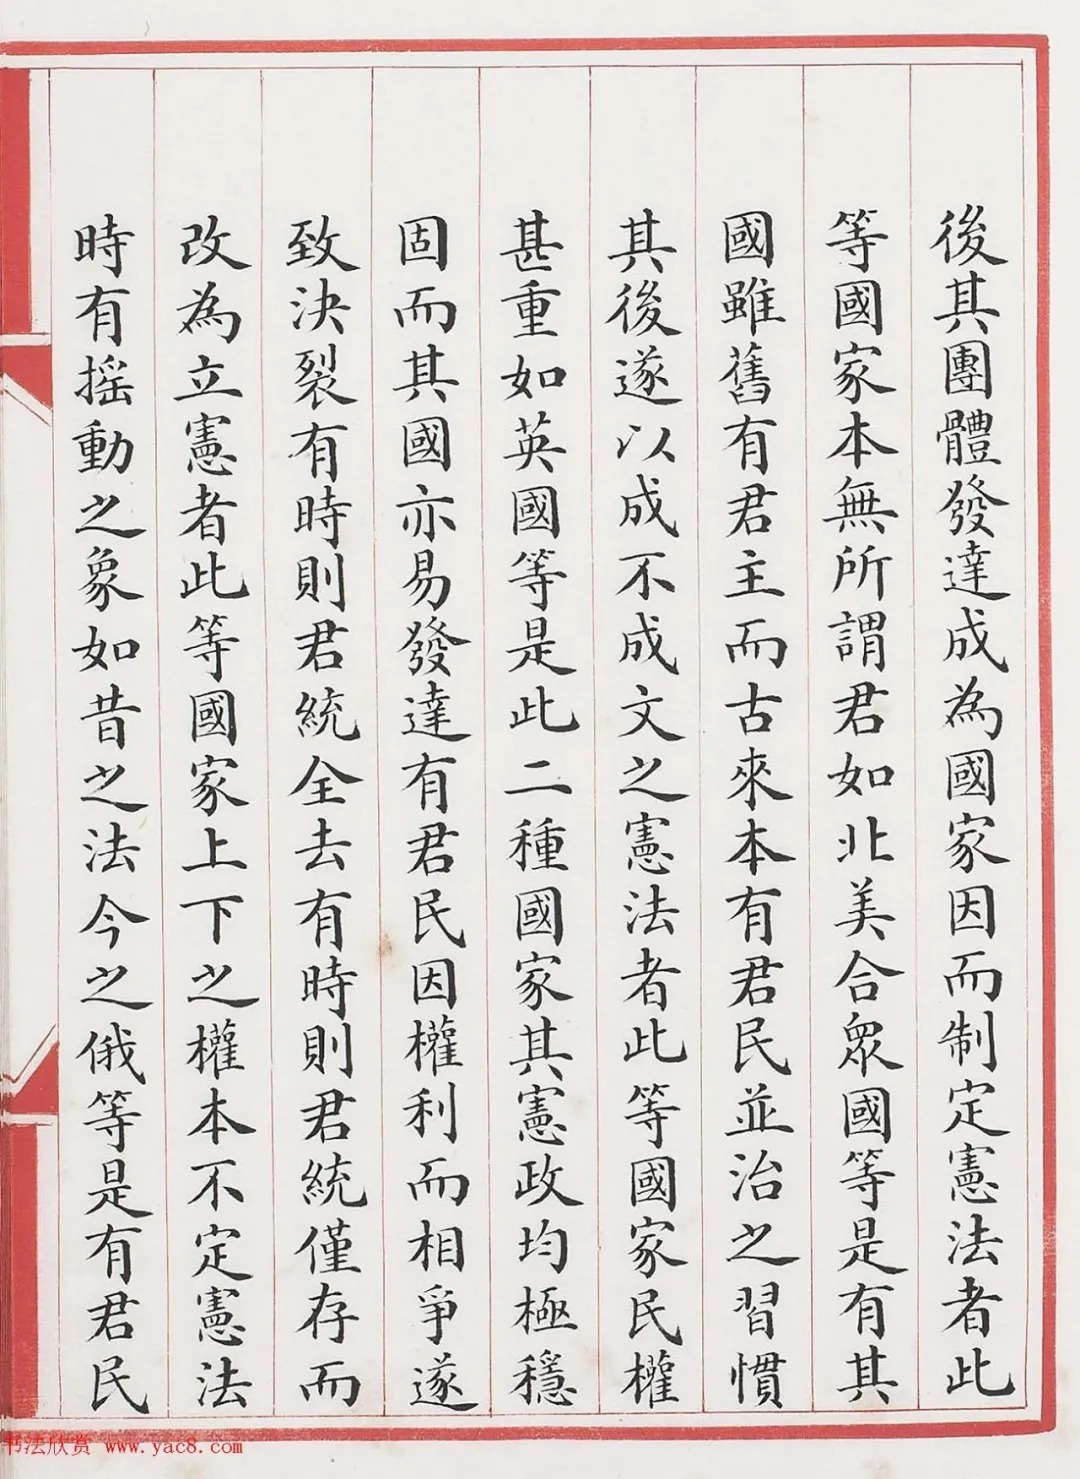 後其團體發達成為國家因而制定憲法者此
等國家本無所謂君如北美合眾國等是有其
國雖舊有君主而古來本有君民並治之習慣
其後遂以成不成文之憲法者此等國家民權
甚重如英國等是此二種國家其憲政均極穩
固而其國亦易發達有君民因權利而相爭遂
致決裂有時則君統全去有時則君統僅存而
改為立憲者此等國家上下之權本不定憲法
時有搖動之象如昔之法今之俄等是有君民
书法欣赏 www.yac8.com